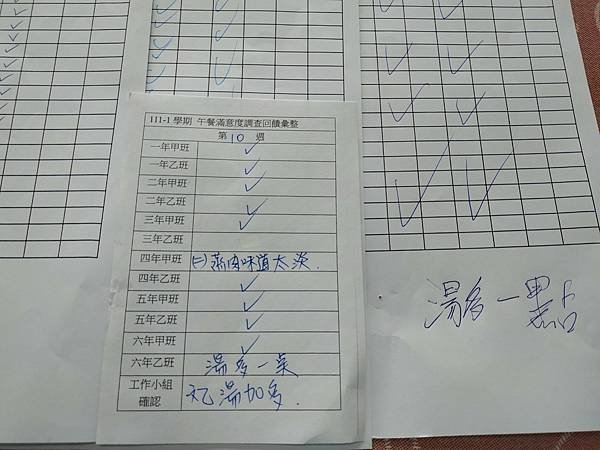 111-1 學期 午餐滿意度調查回饋彙整
第 10 週
一年甲班 ✓
一年乙班 ✓
二年甲班 ✓
二年乙班 ✓
三年甲班 ✓
三年乙班
四年甲班 (二) 滷肉味道太淡.
四年乙班 ✓
五年甲班 ✓
五年乙班 ✓
六年甲班 ✓
六年乙班 湯多一點
工作小組
確認 湯加多.
湯多一點